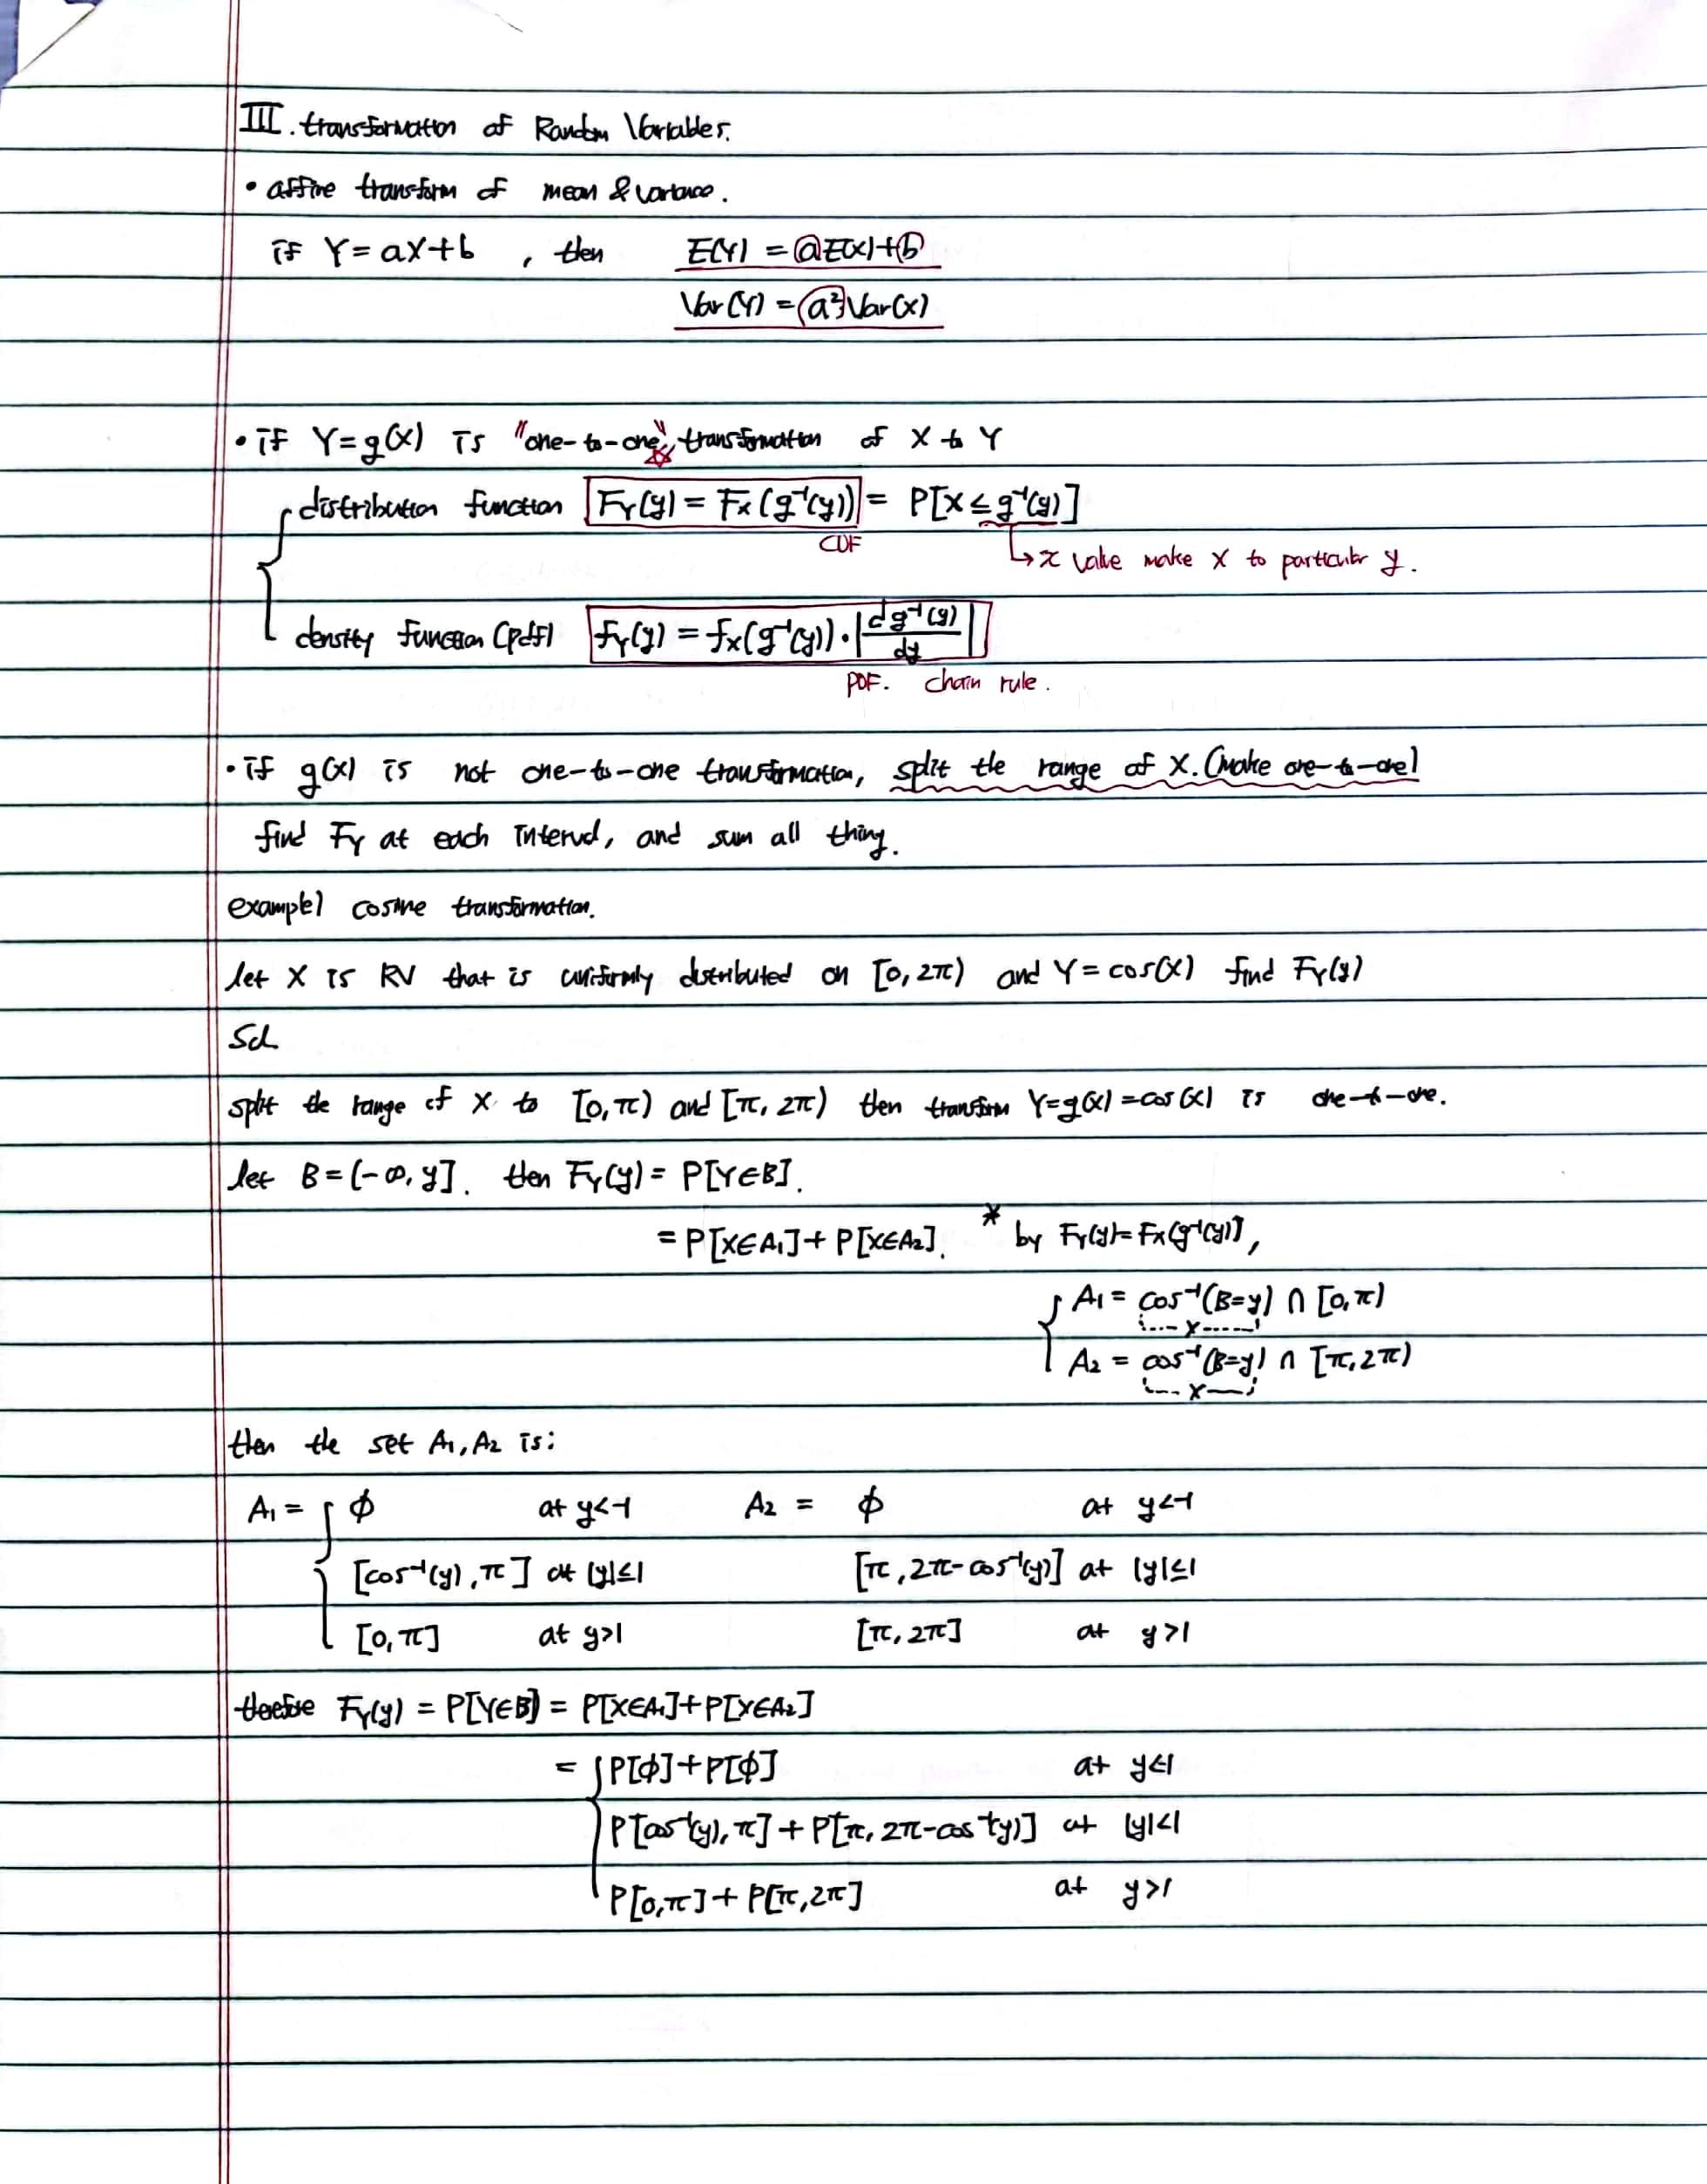 III. transformation of Random Variables.
• affine transform of mean & variance.
if Y = aX+b , then E(Y) = aE(X)+b
Var(Y) = a²Var(X)
• if Y=g(X) is "one-to-one" transformation of X to Y
distribution function F_Y(y) = F_X(g⁻¹(y)) = P[X ≤ g⁻¹(y)]
CDF
↳ x value make X to particular y.
density function (pdf) f_Y(y) = f_X(g⁻¹(y)) · |dg⁻¹(y)/dy|
PDF. chain rule.
• if g(x) is not one-to-one transformation, split the range of X. (make one-to-one)
find F_Y at each interval, and sum all thing.
example) cosine transformation.
let X is RV that is uniformly distributed on [0, 2π) and Y = cos(X) find F_Y(y)
Sol.
split the range of X to [0, π) and [π, 2π) then transform Y=g(X)=cos(X) is one-to-one.
let B = (-∞, y]. then F_Y(y) = P[Y∈B].
= P[X∈A₁] + P[X∈A₂]. * by F_Y(y)=F_X(g⁻¹(y)),
A₁ = cos⁻¹(B=y) ∩ [0, π)
x
A₂ = cos⁻¹(B=y) ∩ [π, 2π)
x
then the set A₁, A₂ is:
A₁ = { ϕ at y<-1 A₂ = ϕ at y<-1
[cos⁻¹(y), π] at |y|≤1 [π, 2π-cos⁻¹(y)] at |y|≤1
[0, π] at y>1 [π, 2π] at y>1
therefore F_Y(y) = P[Y∈B] = P[X∈A₁]+P[X∈A₂]
= { P[ϕ]+P[ϕ] at y<-1
P[cos⁻¹(y), π] + P[π, 2π-cos⁻¹(y)] at |y|<1
P[0, π] + P[π, 2π] at y>1